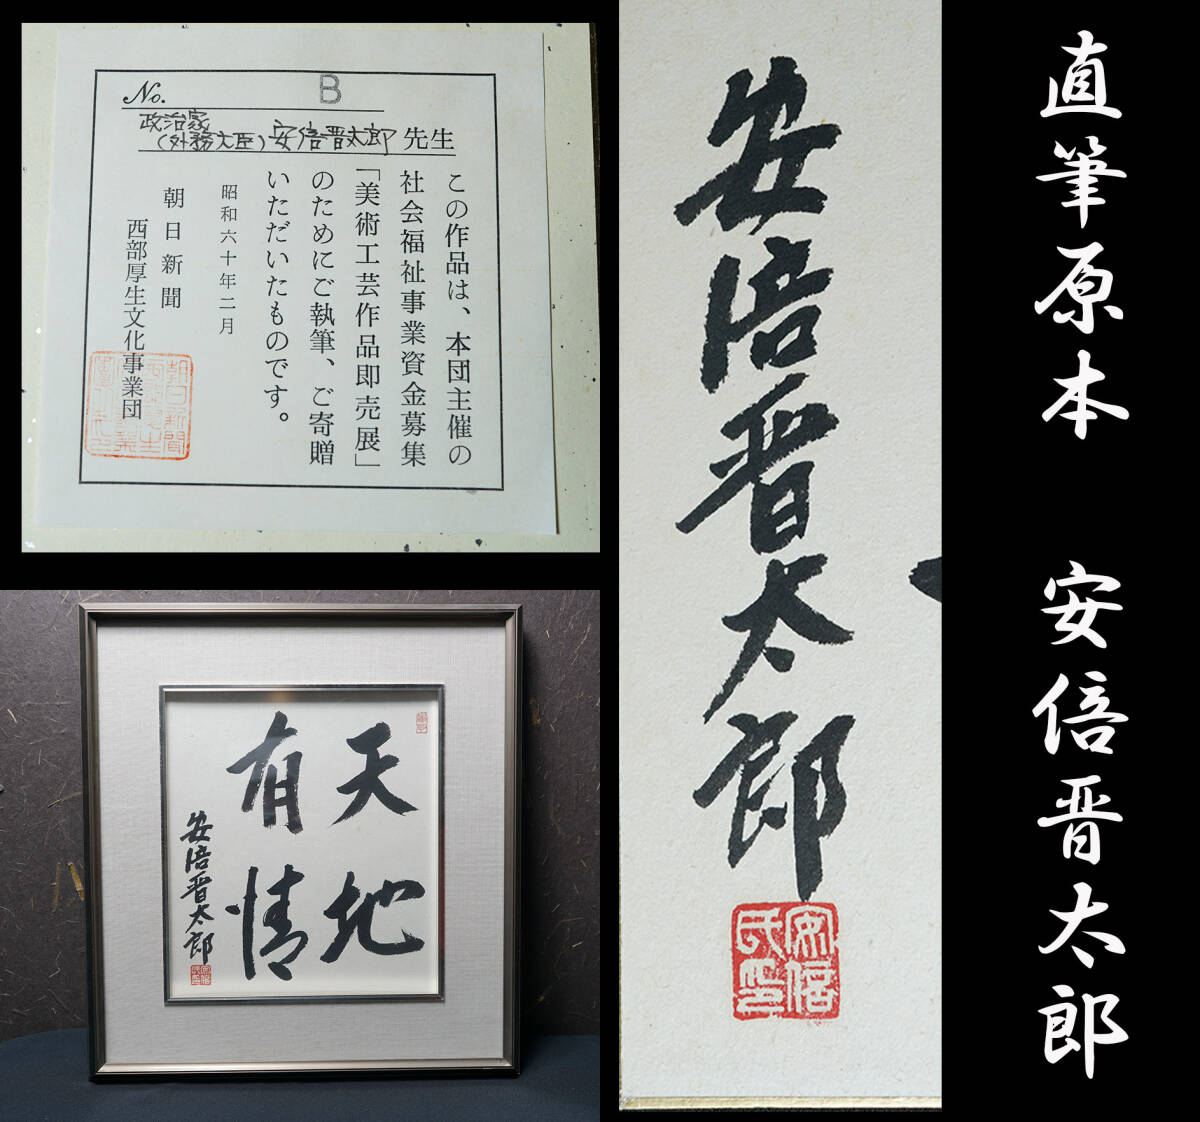 No. B
政治家
(外務大臣)安倍晋太郎 先生
この作品は、本団主催の
社会福祉事業資金募集
「美術工芸作品即売展」
のためにご執筆、ご寄贈
いただいたものです。
昭和六十年二月
朝日新聞
西部厚生文化事業団
天地
有情
安倍晋太郎
安倍晋太郎
安倍
氏印
直筆原本 安倍晋太郎